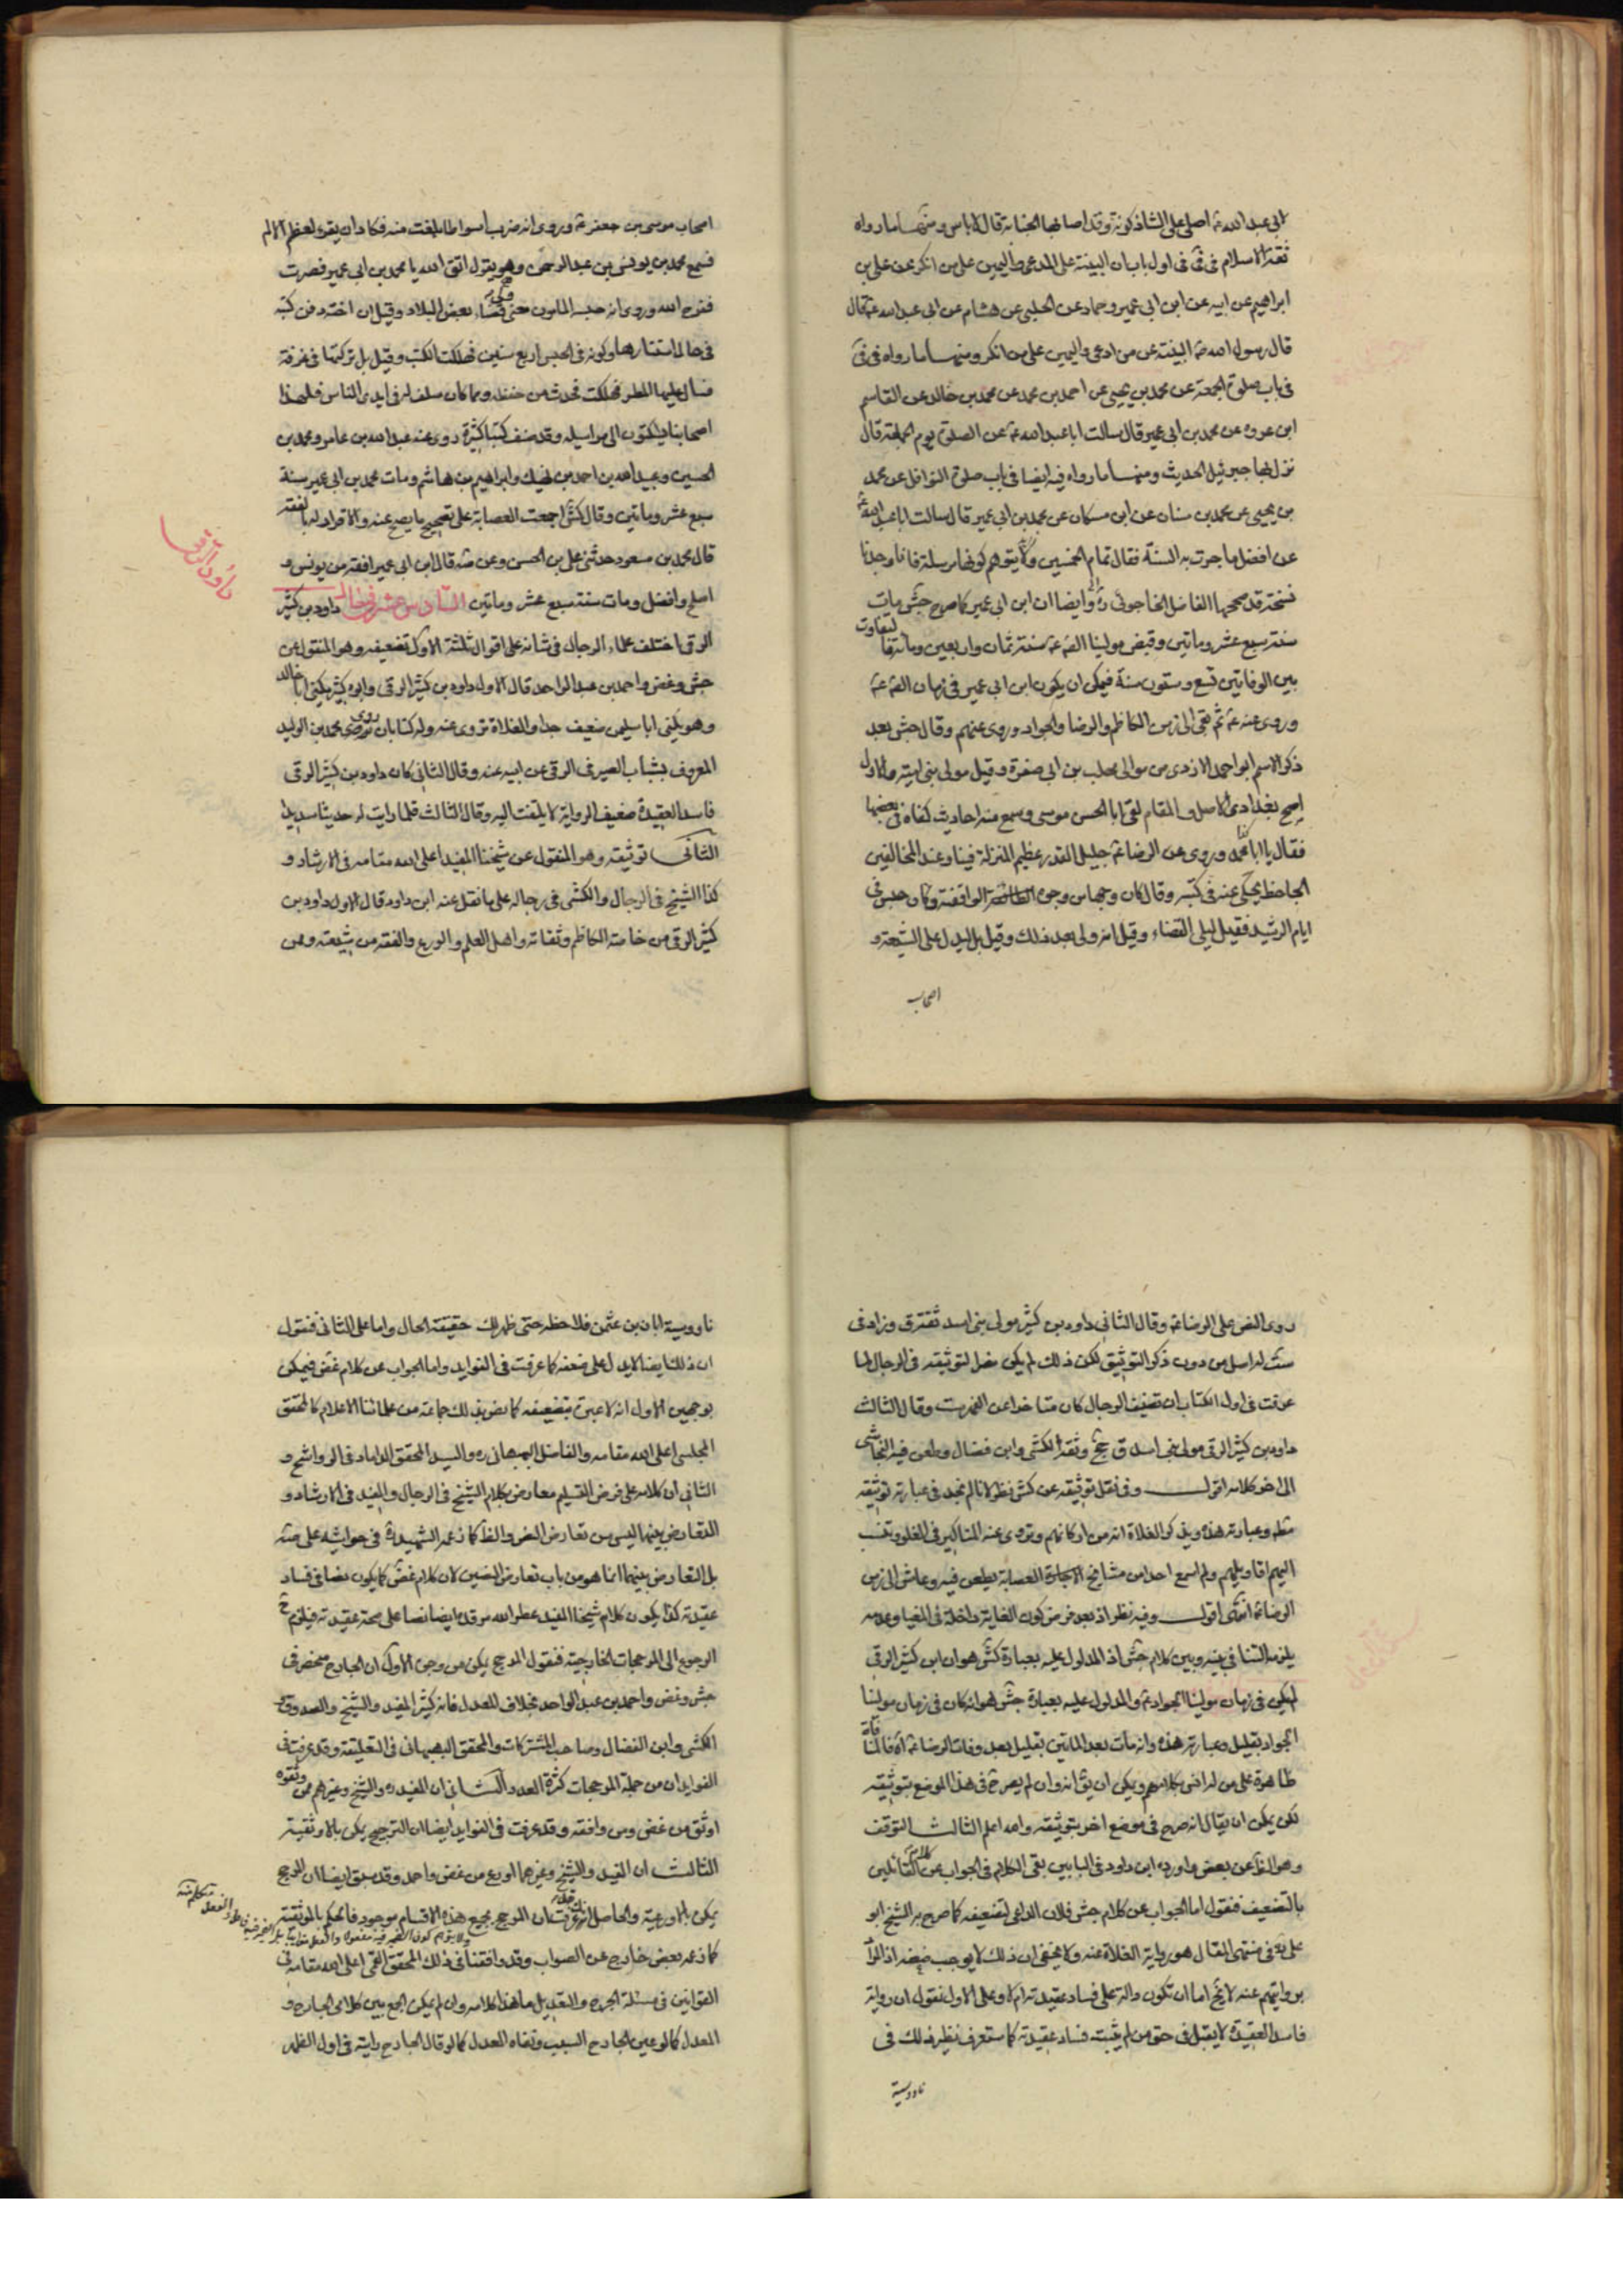 ابی عبد الله ع اصلی علی الشاذکونة وقد اصابها الجنابة قال لا باس ومنها ما رواه
ثقة الاسلام فی فی اول باب ان البینة علی المدعی والیمین علی من انکر عن علی بن
ابراهیم عن ابیه عن ابن ابی عمیر وحماد عن الحلبی عن هشام عن ابی عبد الله ع قال
قال رسول الله ص البینة عن من ادعی والیمین علی من انکر ومنها ما رواه فی
فی باب صلوة الجمعة عن محمد بن یحیی عن احمد بن محمد عن محمد بن خالد عن القاسم
ابن عروه عن محمد بن ابی عمیر قال سالت ابا عبد الله ع عن الصلوة یوم الجمعة قال
نزل بها جبرئیل الحدیث ومنها ما رواه فیه ایضا فی باب صلوة النوافل عن محمد
بن یحیی عن محمد بن سنان عن ابن مسکان عن محمد بن ابی عمیر قال سالت ابا عبد الله ع
عن افضل ما جرت به السنة فقال تمام الخمسین ولا یتوهم کونها مرسلة فانا وجدنا
نسخة قد صححها الفاضل الخاجوئی ره وایضا ان ابن ابی عمیر کما صرح جش مات
سنة سبع عشر وماتین وقبض مولینا الصّ ع سنة ثمان واربعین ومائة فالتفاوت
بین الوفاتین تسع وستون سنة فیمکن ان یکون ابن ابی عمیر فی زمان الصّ ع
وروی عنه ع ثم بقی الی زمن الکاظم والرضا والجواد وروی عنهم وقال جش بعد
ذکر الاسم ابو احمد الازدی من موالی مهلب بن ابی صفرة وقیل مولی بنی امیة والاول
اصح بغدادی الاصل والمقام لقی ابا الحسن موسی وسمع منه احادیث کناه فی بعضها
فقال یا ابا احمد وروی عن الرضا ع جلیل القدر عظیم المنزلة فینا وعند المخالفین
الجاحظ یحکی عنه فی کتبه وقال کان وجها من وجوه الرافضة وکان حبس فی
ایام الرشید فقیل لیلی القضاء وقیل انه ولی بعد ذلک وقیل بل لیدل علی الشیعة و
اصحاب
اصحاب موسی بن جعفر ع وروی انه ضرب اسواطا بلغت منه فکاد ان یقر لعظم الالم
فسمع محمد بن یونس بن عبد الرحمن وهو یقول اتق الله یا محمد بن ابی عمیر فصبرت
ففرج الله وروی انه حبسه المامون حتی ولاه قضاء بعض البلاد وقیل ان اخته دفن کتبه
فی حال استتارها وکونه فی الحبس اربع سنین فهلکت الکتب وقیل بل ترکتها فی غرفة
فسال علیها المطر فهلکت فحدث من حفظه ومما کان سلف له فی ایدی الناس فلهذا
اصحابنا یسکنون الی مراسیله وقد صنف کتبا کثیرة روی عنه عبد الله بن عامر ومحمد بن
الحسین وعبید الله بن احمد بن نهیک وابراهیم بن هاشم ومات محمد بن ابی عمیر سنة
سبع عشر وماتین وقال کش اجمعت العصابة علی تصحیح ما یصح عنه والاقرار له بالفقه
قال محمد بن مسعود حدثنی علی بن الحسن وعن قال ابن ابی عمیر افقه من یونس و
اصلح وافضل ومات سنة سبع عشر وماتین السادس عشر فی حال داود بن کثیر
داود الرقی
الرقی اختلف علماء الرجال فی شانه علی اقوال ثلثة الاول تضعیفه وهو المنقول عن
جش وغض واحمد بن عبد الواحد قال الاول داود بن کثیر الرقی وابوه کثیر یکنی ابا خالد
وهو یکنی ابا سلیمن ضعیف جدا والغلاة تروی عنه وله کتابان روی محمد بن الولید
المعروف بشباب الصیرفی الرقی عن ابیه عنه وقال الثانی کان داود بن کثیر الرقی
فاسد العقیدة ضعیف الروایة لا یلتفت الیه وقال الثالث قلما رایت له حدیثا سدیدا
الثانی توثیقه وهو المنقول عن شیخنا المفید اعلی الله مقامه فی الارشاد و
کذا الشیخ فی الرجال والکشی فی رجاله علی ما نقل عنه ابن داود قال الاول داود بن
کثیر الرقی من خاصة الکاظم وثقاته واهل العلم والورع والفقه من شیعته وممن
روی النص علی الرضا ع وقال الثانی داود بن کثیر مولی بنی اسد ثقة رق وزاد فی
ست له اصل من دون ذکر التوثیق لکن ذلک لم یکن مضرا لتوثیقه فی الرجال لما
عرفت فی اول الکتاب ان تصنیف الرجال کان متاخرا عن الفهرست وقال الثالث
داود بن کثیر الرقی مولی بنی اسد ق جخ وثقه الکشی وابن فضال وطعن فیه النجاشی
الی اخر کلامه اقول وفی نقل توثیقه عن کش نظر لانا لم نجد فی عبارته توثیقه
منه وعبارته هذه ویذکر الغلاة انه من ارکانهم وتروی عنه المناکیر فی الغلو وتنسب
الیهم اقاویلهم ولم اسمع احدا من مشایخ العصابة یطعن فیه وعاش الی زمن
الرضا ع انتهی اقول وفیه نظر اذ بعد فرض کون الغایة داخلة فی المغیا وعدمه
یلزم التنافی بینه وبین کلام جش اذ المدلول علیه بعبارة کش هو ان ابن کثیر الرقی
لم یکن فی زمان مولینا الجواد ع والمدلول علیه بعبارة جش هو انه کان فی زمان مولینا
الجواد بقلیل وعبارته هذه وانه مات بعد الماتین بقلیل بعد وفات الرضا ع فالمنافاة
ظاهرة علی من له ادنی کلامهم ویمکن ان یق انه وان لم یصرح فی هذا الموضع بتوثیقه
لکن یمکن ان یقال انه صرح فی موضع اخر بتوثیقه والله اعلم الثالث التوقف
وهو الظ عن بعض واورده ابن داود فی البابین بقی الکلام فی الجواب عن کلام القائلین
بالتضعیف فنقول اما الجواب عن کلام جش فلان الداعی لتضعیفه کما صرح به الشیخ ابو
علی ره فی منتهی المقال هو روایة الغلاة عنه ولا یخفی ان ذلک لا یوجب ضعفه اذ المراد
بروایتهم عنه لا یخ اما ان تکون دالة علی فساد عقیدته ام لا وعلی الاول نقول ان روایة
فاسد العقیدة لا یقبل فی حق من لم یثبت فساد عقیدته کما ستعرف نظیر ذلک فی
ناووسیة
ناووسیة ابان بن عثمن فلاحظه حتی ظهر لک حقیقة الحال واما علی الثانی فنقول
ان ذلک ایضا لا یدل علی ضعفه کما عرفت فی الفواید واما الجواب عن کلام غض فیمکن
بوجهین الاول انه لا عبرة بتضعیفه کما یضرنا بذلک جماعة من علمائنا الاعلام کالمحقق
المجلسی اعلی الله مقامه والفاضل البهبهانی ره والسید المحقق الداماد فی الرواشح و
الثانی ان کلامه علی فرض التسلیم معارض بکلام الشیخ فی الرجال والمفید فی الارشاد و
التعارض بینهما لیس من تعارض النص والظ کما زعمه الشهید ره فی حواشیه علی صه
بل التعارض بینهما انما هو من باب تعارض النصین لان کلام غض کما یکون نصا فی فساد
عقیدته کذا یکون کلام شیخنا المفید عطر الله مرقده ایضا نصا علی صحة عقیدته فیلزم ح
الرجوع الی المرجحات الخارجیة فنقول المرجح یمکن من وجوه الاول ان الجارح منحصر فی
جش وغض واحمد بن عبد الواحد بخلاف المعدل فانه کثیر المفید والشیخ والصدوق
الکشی وابن الفضال وصاحب المشترکات والمحقق البهبهانی فی التعلیقة وقد عرفت فی
الفواید ان من جملة المرجحات کثرة العدد الثانی ان المفید ره والشیخ وغیرهم ممن وثقوه
اوثق من غض ومن وافقه وقد عرفت فی الفواید ایضا ان الترجیح یمکن بالاوثقیة
الثالث ان المفید والشیخ وغیرهما اورع من غض واحمد وقد سبق ایضا ان المرجح
یمکن بالاورعیة والحاصل ان المرجح بجمیع هذه الاقسام موجود فالحکم بالموثقیة
کما زعمه بعض خارج عن الصواب وقد وافقنا فی ذلک المحقق القمی اعلی الله مقامه فی
القوانین فی مسئلة الجرح والتعدیل ما هذا کلامه وان لم یمکن الجمع بین کلامی الجارح و
المعدل کما لو عین الجارح السبب ونفاه المعدل کما لو قال الجارح رایته فی اول الظهر